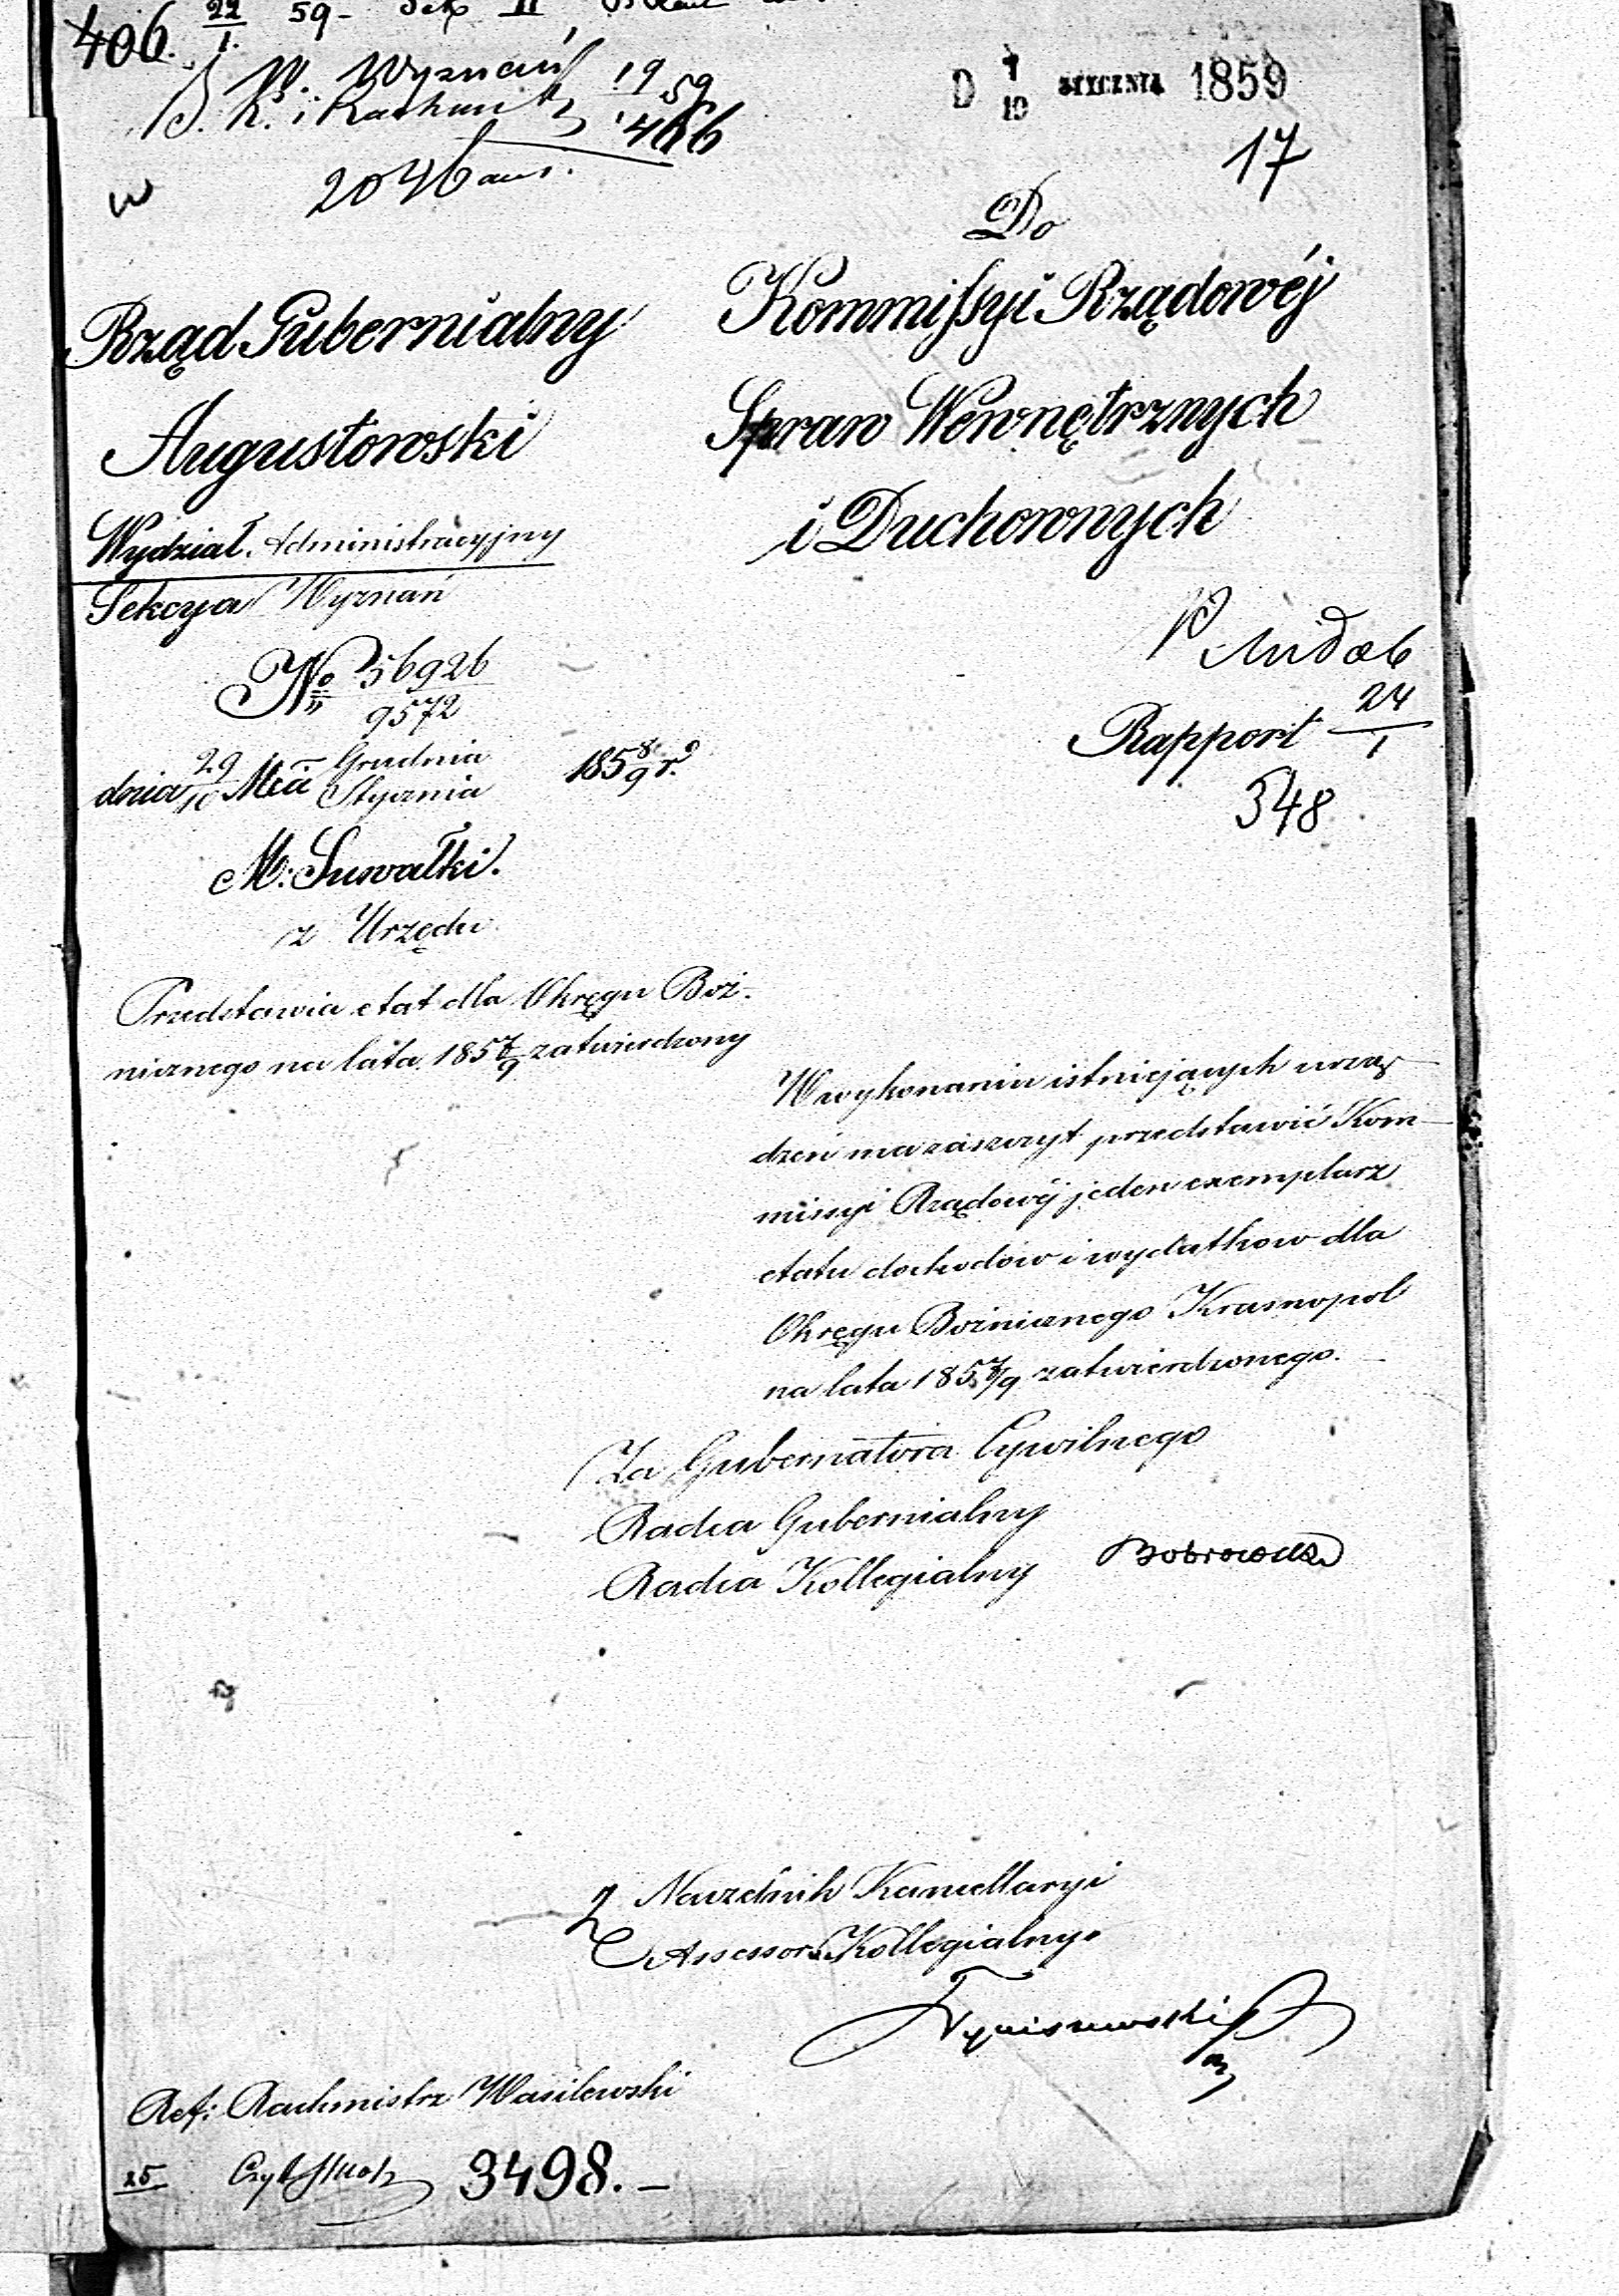 406. 22/1. 59 -
W. Wyznań 19/1 59
B. K. i Rachun 466
2046
D 7/19 STYCZNIA 1859
17
Do
Kommissyi Rządowéj
Spraw Wewnętrznych
i Duchownych
Rząd Gubernialny
Augustowski
Wydział Administracyjny
Sekcya Wyznań
№ 56926/9572
dnia 29/10 Mca Grudnia/Stycznia 1858/9 r.
M. Suwałki.
z Urzędu
Rapport 24/1
348
Przedstawia etat dla Okręgu Boż-
nicznego na lata 1857/9 zatwierdzony
W wykonaniu istniejących urzą-
dzeń ma zaszczyt przedstawić Kom-
missyi Rządowéj jeden exemplarz
etatu dochodów i wydatkow dla
Okręgu Bożnicznego Krasnopol
na lata 1857/9 zatwierdzonego.
Za Gubernatora Cywilnego
Radca Gubernialny
Radca Kollegialny Bobrowski
Naczelnik Kancellaryi
Assessor Kollegialny
Ref: Rachmistrz Wasilewski
25 3498. -